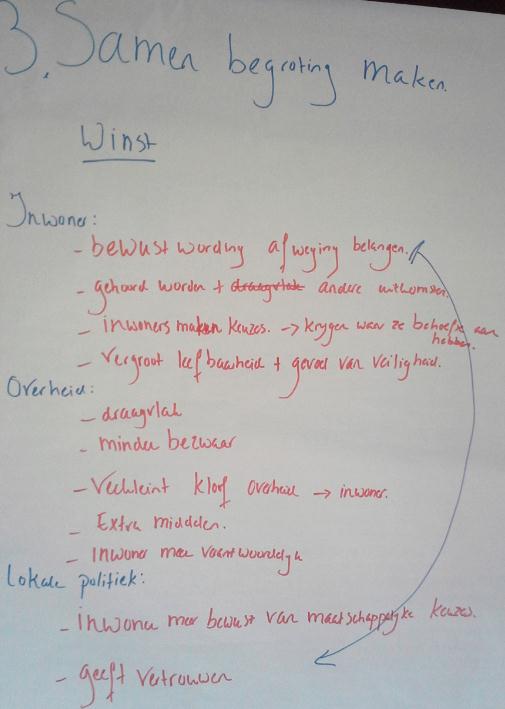 3. Samen begroting maken.
Winst
Inwoner:
- bewust wording afweging belangen.
- gehoord worden + draagvlak andere uitkomsten.
- inwoners maken keuzes. → krygen waar ze behoefte aan
hebben.
- Vergroot leefbaarheid + gevoel van veiligheid.
Overheid:
- draagvlak
- minder bezwaar
- Verkleint kloof overheid → inwoner.
- Extra middelen.
- Inwoner mee verantwoordelyk
Lokale politiek:
- inwoner meer bewust van maatschappelyke keuzes.
- geeft vertrouwen